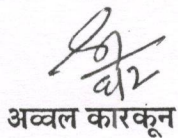 अव्वल कारकून